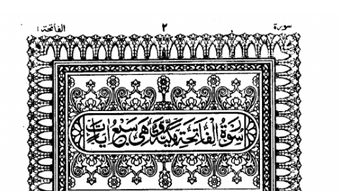 سورة ٢ الفاتحة ١
سورة الفاتحة مكية وهي سبع آيات